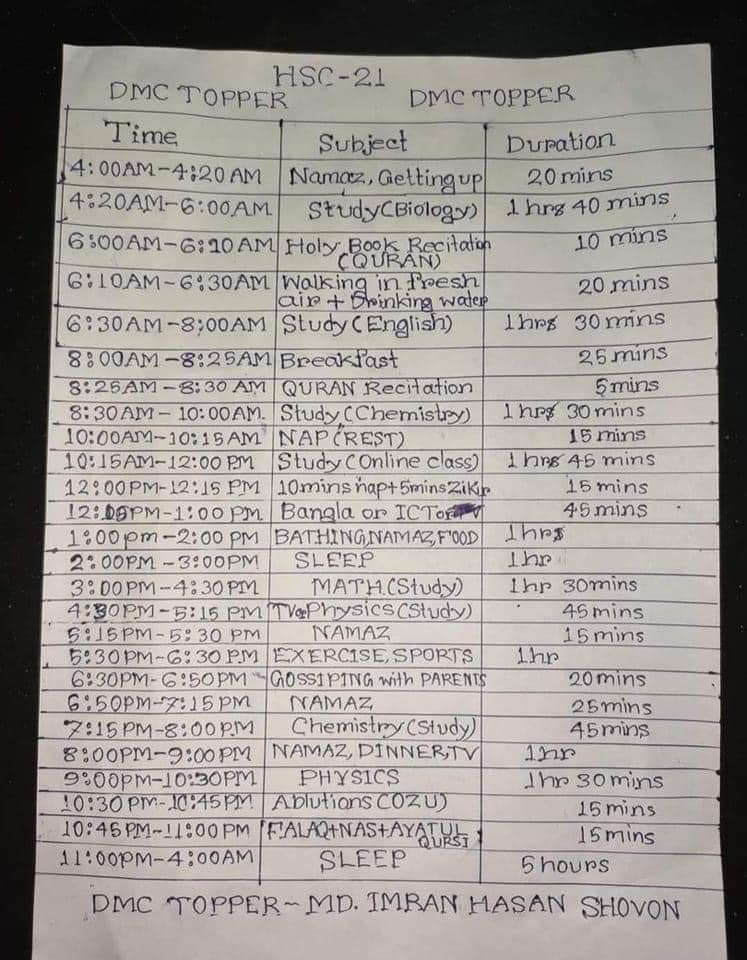 HSC-21
DMC TOPPER DMC TOPPER
Time Subject Duration
4:00AM-4:20 AM Namaz, Getting up 20 mins
4:20AM-6:00AM Study (Biology) 1 hrs 40 mins
6:00AM-6:10AM Holy Book Recitation (QURAN) 10 mins
6:10AM-6:30AM Walking in fresh air + Drinking water 20 mins
6:30AM-8:00AM Study (English) 1hrs 30 mins
8:00AM-8:25AM Breakfast 25 mins
8:25AM-8:30 AM QURAN Recitation 5mins
8:30AM-10:00AM. Study (Chemistry) 1 hrs 30 mins
10:00AM-10:15AM NAP (REST) 15 mins
10:15AM-12:00 PM Study (Online class) 1 hrs 45 mins
12:00PM-12:15 PM 10mins nap+5mins Zikir 15 mins
12:15PM-1:00 PM Bangla or ICT 45 mins
1:00pm-2:00 pm BATHING,NAMAZ,FOOD 1hrs
2:00PM-3:00PM SLEEP 1hr
3:00PM-4:30PM MATH.(Study) 1hr 30mins
4:30PM-5:15 PM TV or Physics (Study) 45 mins
5:15PM-5:30 PM NAMAZ 15 mins
5:30PM-6:30 P.M EXERCISE, SPORTS 1hr
6:30PM-6:50PM GOSSIPING with PARENTS 20mins
6:50PM-7:15 PM NAMAZ 25mins
7:15PM-8:00P.M Chemistry (Study) 45mins
8:00PM-9:00 PM NAMAZ, DINNER,TV 1hr
9:00pm-10:30PM PHYSICS 1hr 30 mins
10:30 PM-10:45PM Ablutions (OZU) 15 mins
10:45 PM-11:00 PM FALAQ+NAS+AYATUL QURSI 15 mins
11:00PM-4:00AM SLEEP 5 hours
DMC TOPPER~MD. IMRAN HASAN SHOVON